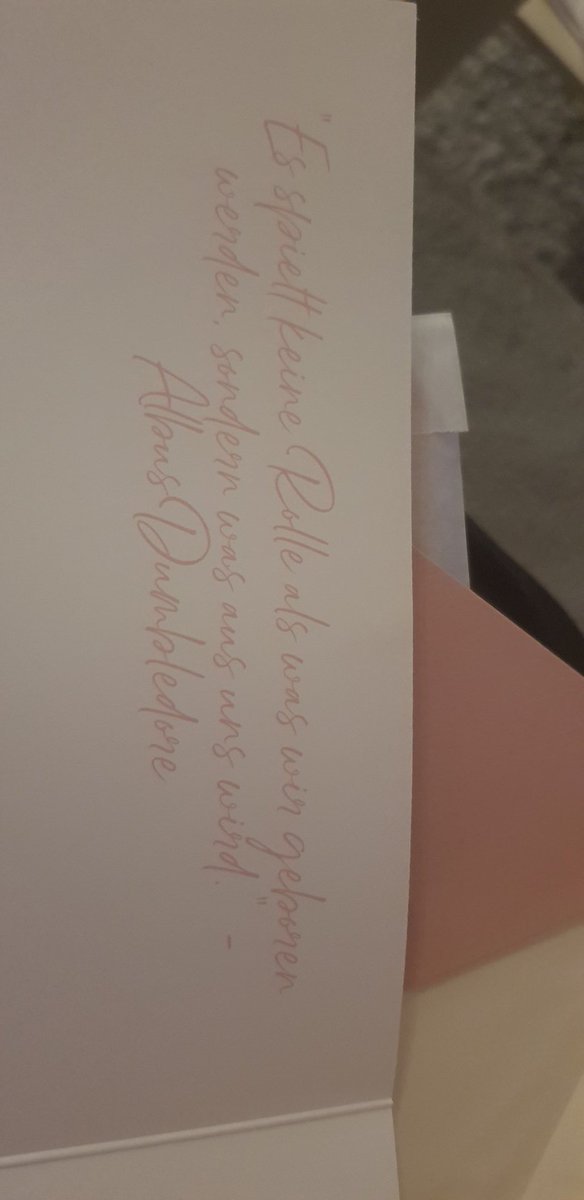 "Es spielt keine Rolle als was wir geboren
werden, sondern was aus uns wird." -
Albus Dumbledore